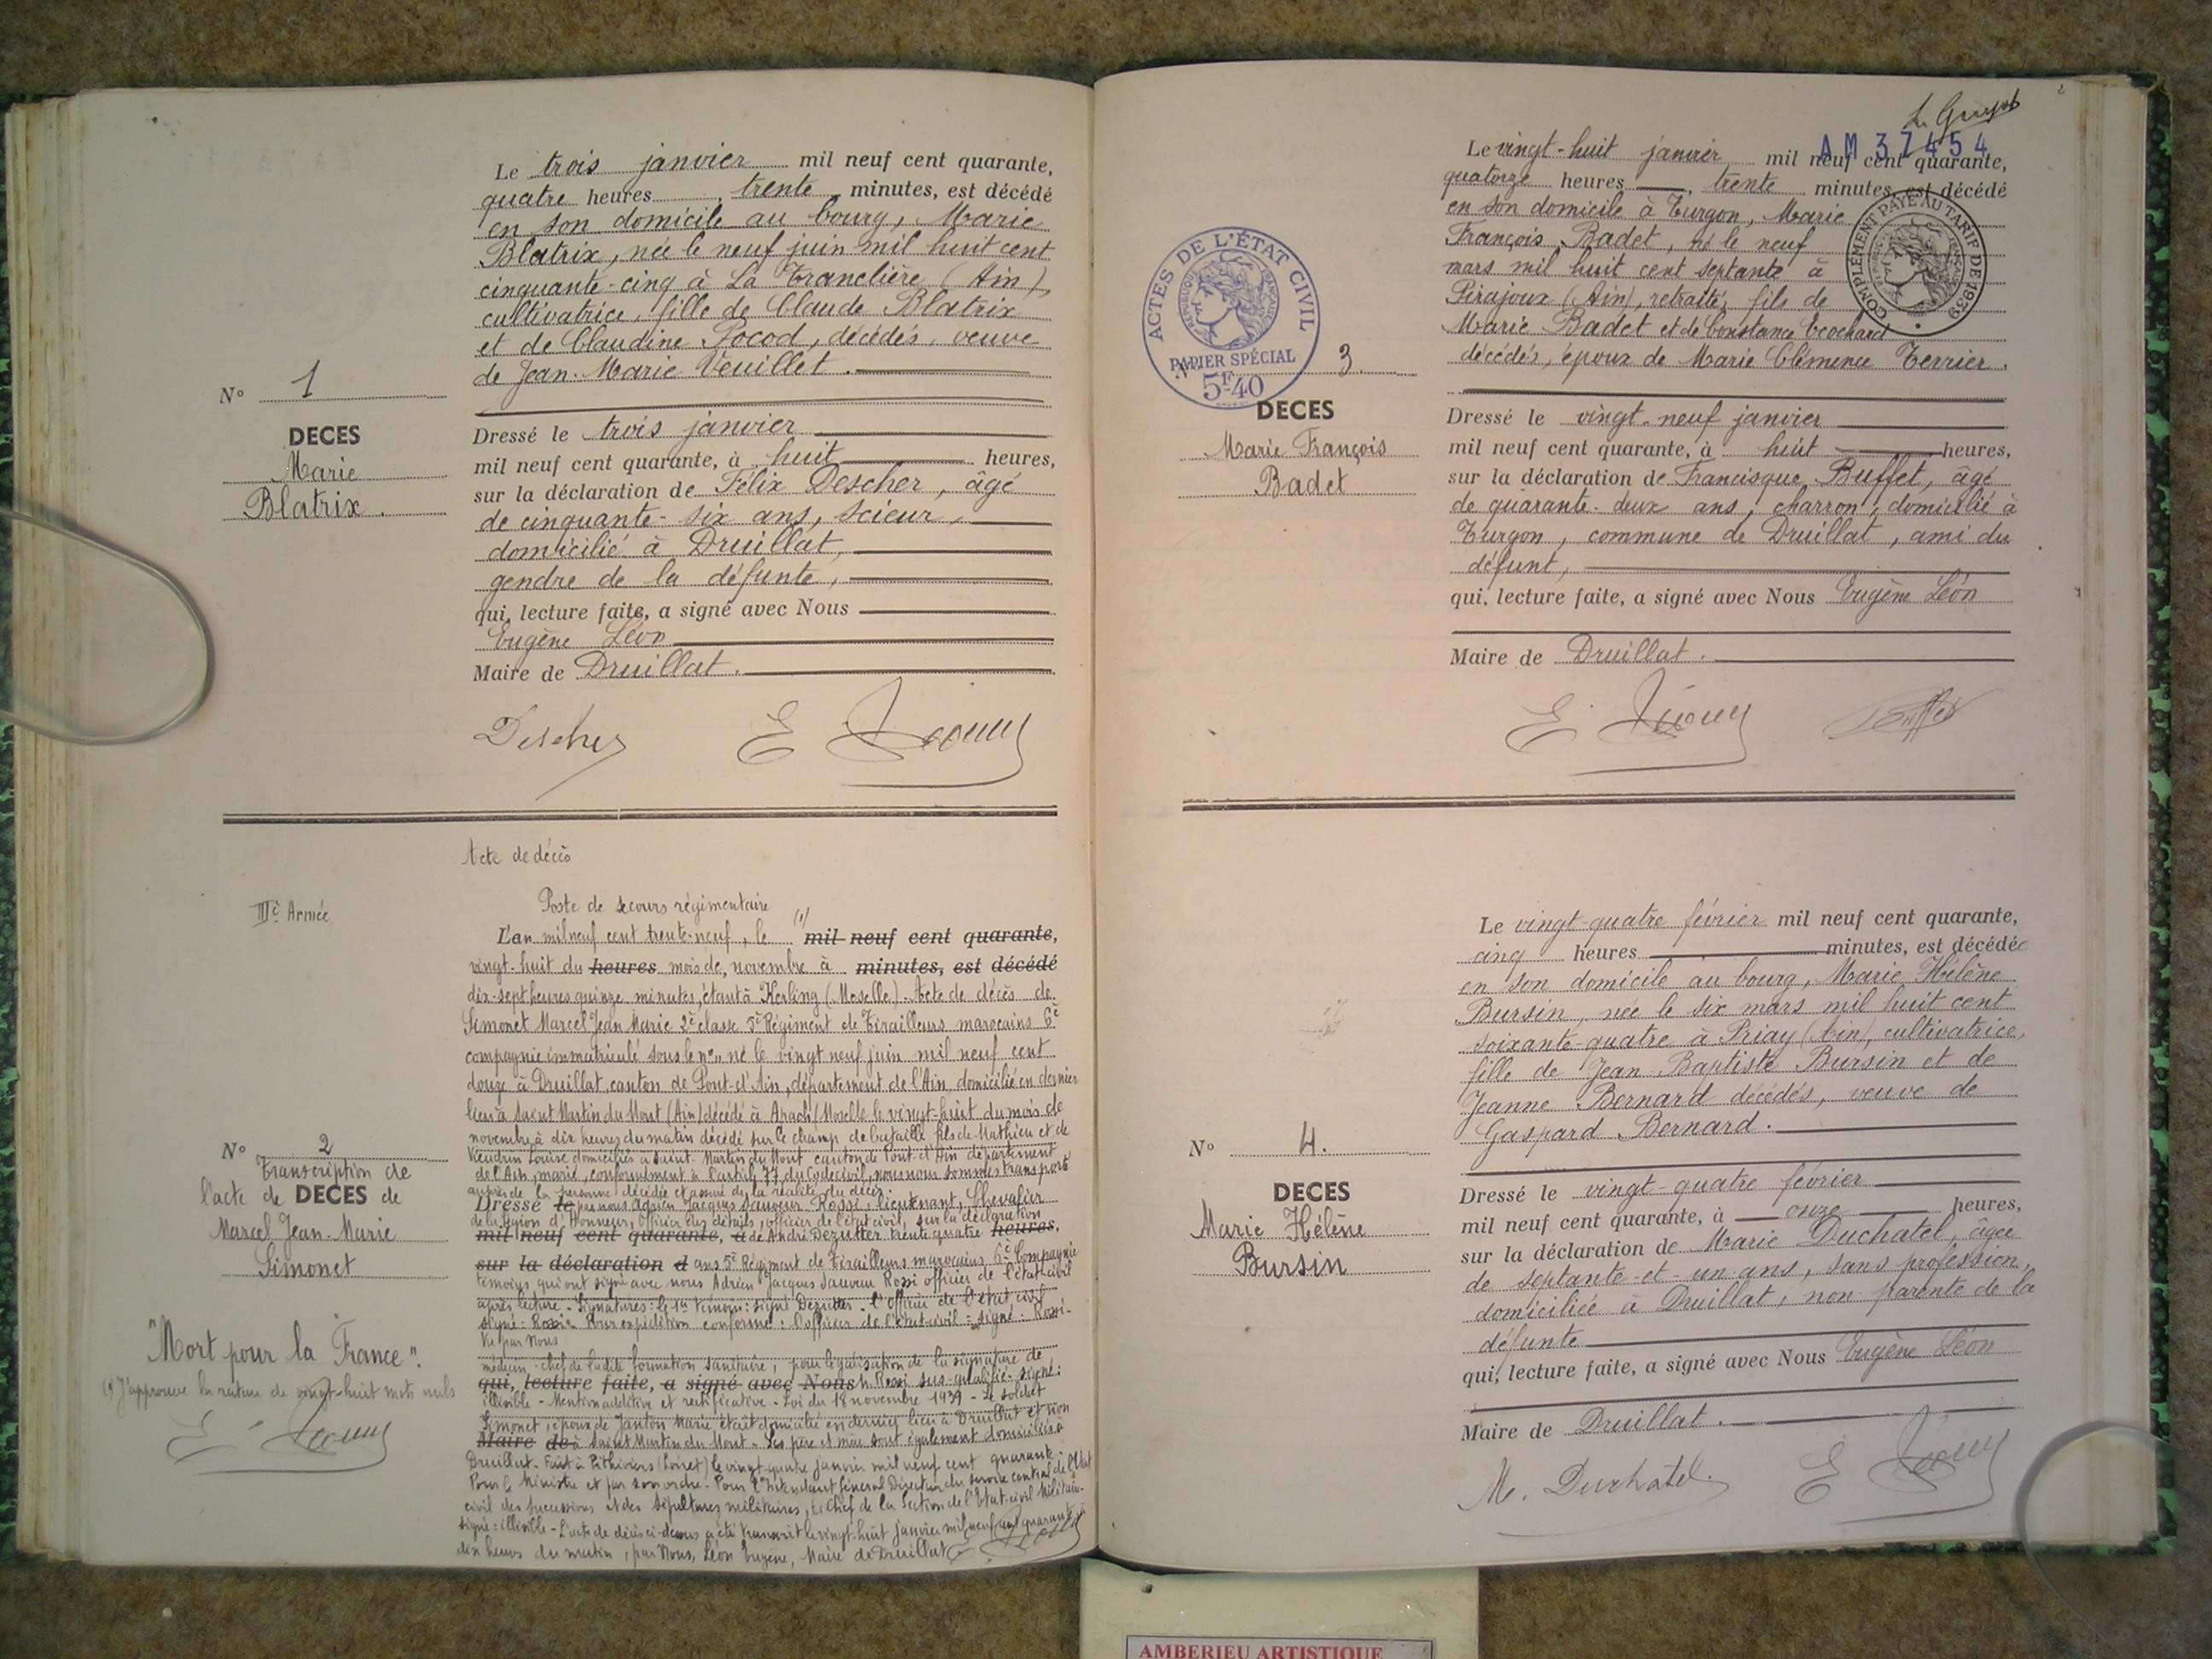 Le trois janvier mil neuf cent quarante,
quatre heures, trente minutes, est décédé
en son domicile au bourg, Marie
Blatrix, née le neuf juin mil huit cent
cinquante-cinq à La Tranclière (Ain),
cultivatrice, fille de Claude Blatrix
et de Claudine Pocod, décédés, veuve
de Jean-Marie Veuillet.
N° 1
DECES
Marie
Blatrix.
Dressé le trois janvier
mil neuf cent quarante, à huit heures,
sur la déclaration de Félix Descher, âgé
de cinquante-six ans, scieur,
domicilié à Druillat,
gendre de la défunte,
qui, lecture faite, a signé avec Nous
Eugène Léon
Maire de Druillat.
Descher E Léon
Acte de décès
IIIe Armée
Poste de secours régimentaire
L'an mil neuf cent trente-neuf, le (1) mil neuf cent quarante,
vingt-huit du heures mois de, novembre à minutes, est décédé
dix-sept heures quinze minutes, étant à Kerling (Moselle). Acte de décès de
Simonet Marcel Jean Marie 2e classe 5e Régiment de Tirailleurs marocains 6e
compagnie immatriculé sous le n° né le vingt neuf juin mil neuf cent
douze à Druillat, canton de Pont-d'Ain, département de l'Ain, domicilié en dernier
lieu à Saint Martin du Mont (Ain) décédé à Apach (Moselle) le vingt-huit du mois de
novembre à dix heures du matin décédé sur le champ de bataille fils de Mathieu et de
Vendrin Louise domiciliés à Saint-Martin du Mont canton de Pont-d'Ain département
de l'Ain, marié, conformément à l'article 77 du Code civil, nous nous sommes transporté
auprès de la personne décédée et assuré de la réalité du décès.
Dressé le par nous Adrien Jacques Sauveur Rossi, lieutenant, Chevalier
de la Légion d'Honneur, Officier des détails, officier de l'état civil, sur la déclaration
mil neuf cent quarante, à de André Dezutter trente quatre heures,
sur la déclaration d ans 5e Régiment de Tirailleurs marocains 6e Compagnie
témoins qui ont signé avec nous Adrien Jacques Sauveur Rossi officier de l'état-civil
après lecture. Signatures: le 1er témoin: signé Dezutter. l'Officier de l'état civil
signé: Rossi. Pour expédition conforme: L'officier de l'état-civil: signé: Rossi.
Vu par Nous
médecin-chef de ladite formation sanitaire, pour légalisation de la signature de
qui, lecture faite, a signé avec Nous M. Rossi sus-qualifié. signé:
illisible - Mention additive et rectificative - Loi du 18 novembre 1939 - Le soldat
Simonet, époux de Janton Marie était domicilié en dernier lieu à Druillat et non
Maire de à Saint Martin du Mont. Ses père et mère sont également domiciliés à
Druillat. Fait à Pithiviers (Loiret) le vingt quatre janvier mil neuf cent quarante.
Pour le Ministre et par son ordre. Pour l'Intendant Général Directeur du service central de l'état
civil des successions et des sépultures militaires, Le Chef de la Section de l'état-civil Militaire
signé: illisible - L'acte de décès ci-dessus a été transcrit le vingt-huit janvier mil neuf cent quarante à
dix heures du matin, par Nous, Léon Eugène, Maire de Druillat E Léon
N° 2
Transcription de
l'acte de DECES de
Marcel Jean-Marie
Simonet
"Mort pour la France".
(1) J'approuve la rature de vingt-huit mots nuls
E Léon
L. Guyot
AM 37454
Le vingt-huit janvier mil neuf cent quarante,
quatorze heures, trente minutes, est décédé
en son domicile à Turgon, Marie
François Badet, né le neuf
mars mil huit cent septante à
Pirajoux (Ain), retraité, fils de
Marie Badet et de Constance Ecochard
décédés, époux de Marie Clémence Terrier.
COMPLÉMENT PAYÉ AU TARIF DE 1939
ACTES DE L'ÉTAT CIVIL
RÉPUBLIQUE FRANÇAISE
PAPIER SPÉCIAL
5F40
3.
DECES
Marie François
Badet
Dressé le vingt-neuf janvier
mil neuf cent quarante, à huit heures,
sur la déclaration de Francisque Buffet, âgé
de quarante-deux ans, charron, domicilié à
Turgon, commune de Druillat, ami du
défunt,
qui, lecture faite, a signé avec Nous Eugène Léon
Maire de Druillat.
E Léon Buffet
Le vingt-quatre février mil neuf cent quarante,
cinq heures minutes, est décédée
en son domicile au bourg, Marie Hélène
Bursin, née le six mars mil huit cent
soixante-quatre à Priay (Ain), cultivatrice,
fille de Jean Baptiste Bursin et de
Jeanne Bernard décédés, veuve de
Gaspard Bernard.
N° 4.
DECES
Marie Hélène
Bursin
Dressé le vingt-quatre février
mil neuf cent quarante, à onze heures,
sur la déclaration de Marie Duchatel, âgée
de septante-et-un ans, sans profession,
domiciliée à Druillat, non parente de la
défunte
qui, lecture faite, a signé avec Nous Eugène Léon
Maire de Druillat.
M. Duchatel E Léon
AMBERIEU ARTISTIQUE